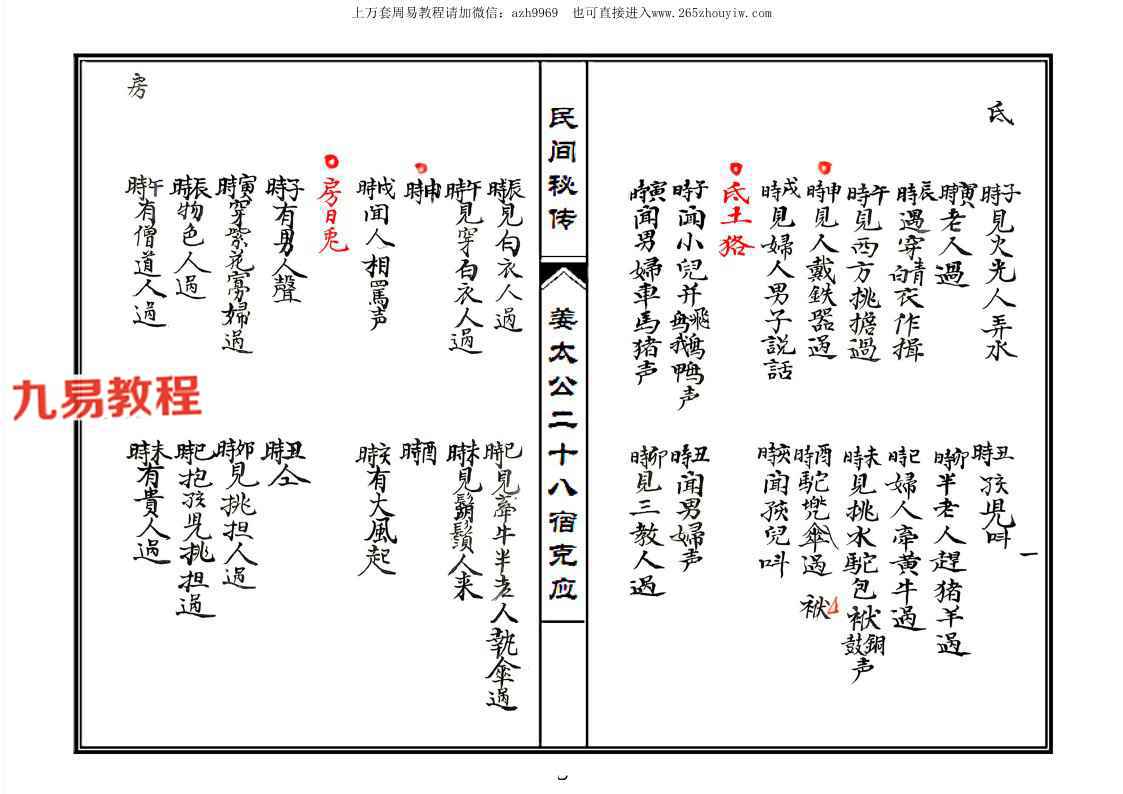 上万套周易教程请加微信：azh9969 也可直接进入www.265zhouyiw.com
氐
子時見火光人弄水
丑時孩児呌
一
寅時老人過
卯時半老人趕猪羊過
辰時遇穿青衣作揖
巳時婦人牽黄牛過
午時見西方挑擔過
未時見挑水駝包袱銅鼓声
申時見人戴鉄器過
酉時駝兠傘過
袱
戌時見婦人男子説話
亥時聞孩兒呌
氐土狢
子時闻小兒并飛鳥鵝鴨声
丑時聞男婦声
寅時聞男婦車馬猪声
卯時見三教人過
民间秘传
姜太公二十八宿克应
辰見白衣人過時
巳時見牽牛半老人執傘過
午時見穿白衣人過
未時見鬍鬚人来
申時
酉時
戌時聞人相罵声
亥時有大風起
房日兎
子時有男人聲
丑時仝
寅時穿紫花寡婦過
卯時見挑担人過
辰時物色人過
巳時抱孩児挑担過
午時有僧道人過
未時有貴人過
房
九易教程